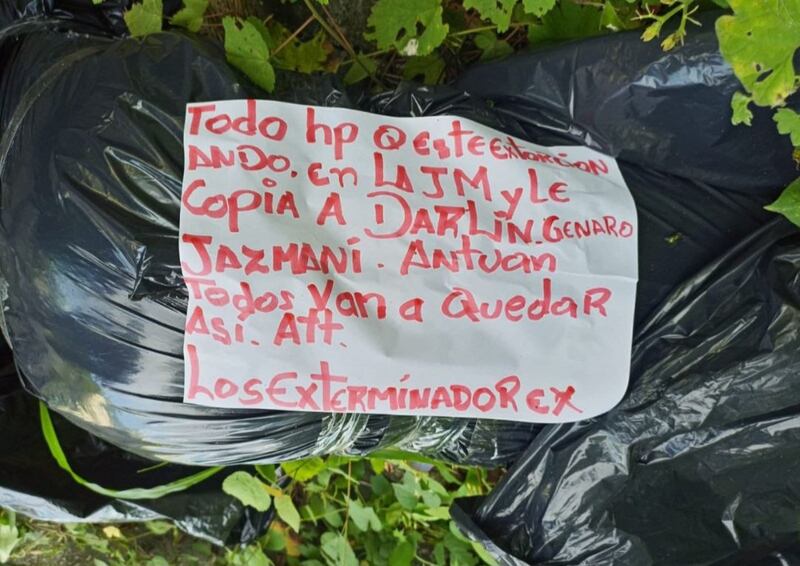 Todo hp Q este extorcion
ando. en LA JM y Le
copia A DARLIN. GENARO
JAZMANÍ. Antuan
Todos Van a QuedaR
Así. Att.
Los ExtermínadoRex